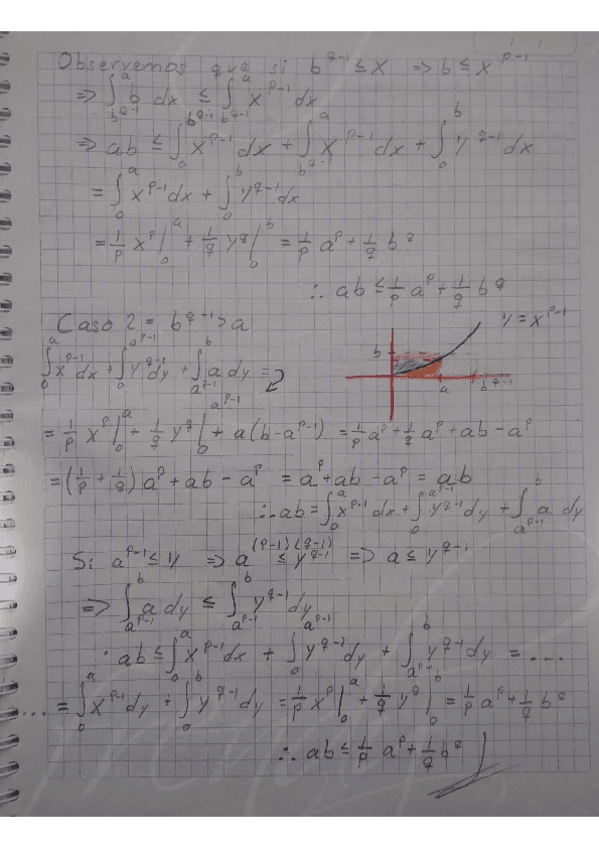 Observemos que si b^{q-1} ≤ x ⇒ b ≤ x^{p-1}
⇒ ∫_{b^{q-1}}^{a} b dx ≤ ∫_{b^{q-1}}^{a} x^{p-1} dx
⇒ ab ≤ ∫_0^{b^{q-1}} x^{p-1} dx + ∫_{b^{q-1}}^{a} x^{p-1} dx + ∫_0^b y^{q-1} dx
= ∫_0^a x^{p-1} dx + ∫_0^b y^{q-1} dx
= 1/p x^p |_0^a + 1/q y^q |_0^b = 1/p a^p + 1/q b^q
∴ ab ≤ 1/p a^p + 1/q b^q
Caso 2 = b^{q-1} > a
y = x^{p-1}
b
a
b^{q-1}
∫_0^a x^{p-1} dx + ∫_0^{a^{p-1}} y^{q-1} dy + ∫_{a^{p-1}}^b a dy =
= 1/p x^p |_0^a + 1/q y^q |_0^{a^{p-1}} + a(b - a^{p-1}) = 1/p a^p + 1/q a^p + ab - a^p
= (1/p + 1/q) a^p + ab - a^p = a^p + ab - a^p = ab
∴ ab = ∫_0^a x^{p-1} dx + ∫_0^{a^{p-1}} y^{q-1} dy + ∫_{a^{p-1}}^b a dy
Si a^{p-1} ≤ y ⇒ a^{(p-1)(q-1)} ≤ y^{q-1} ⇒ a ≤ y^{q-1}
⇒ ∫_{a^{p-1}}^b a dy ≤ ∫_{a^{p-1}}^b y^{q-1} dy
∴ ab ≤ ∫_0^a x^{p-1} dx + ∫_0^{a^{p-1}} y^{q-1} dy + ∫_{a^{p-1}}^b y^{q-1} dy = ....
... = ∫_0^a x^{p-1} dy + ∫_0^b y^{q-1} dy = 1/p x^p |_0^a + 1/q y^q |_0^b = 1/p a^p + 1/q b^q
∴ ab ≤ 1/p a^p + 1/q b^q